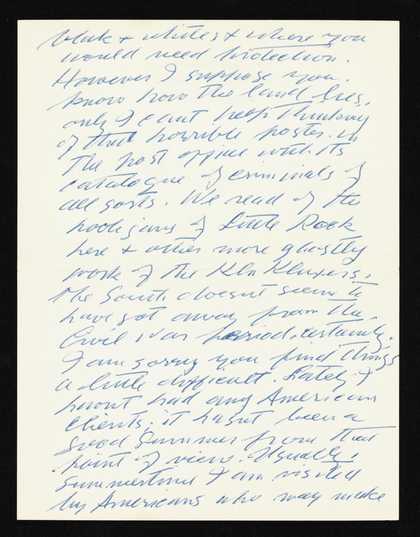 black & whites & where you
would need protection.
However I suppose you
know how the land lies,
only I cant keep thinking
of that horrible poster in
the post office with its
catalogue of criminals of
all sorts. We read of the
hooligans of Little Rock
here & other more ghastly
work of the Klu Kluxers.
The South doesnt seem to
have got away from the
Civil War period, certainly.
I am sorry you find things
a little difficult. Lately I
havnt had any American
clients; it hasnt been a
good Summer from that
point of view. Usually,
Summertime I am visited
by Americans who may make